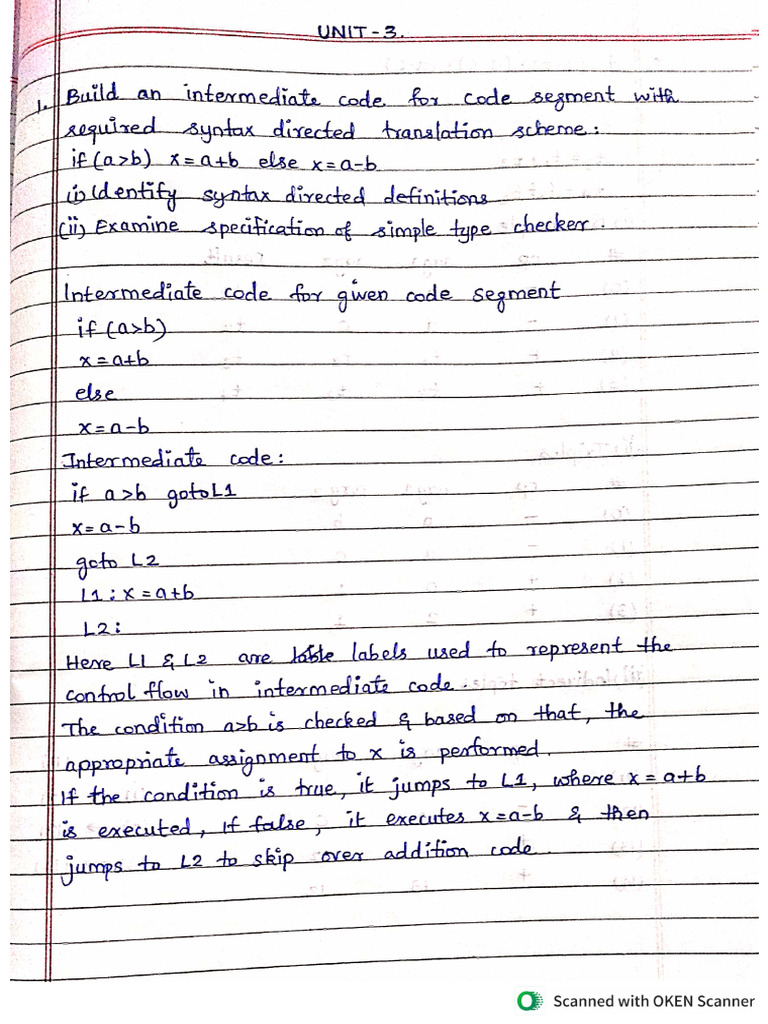 UNIT-3.
1. Build an intermediate code for code segment with
required syntax directed translation scheme:
if (a>b) x=a+b else x=a-b
(i) Identify syntax directed definitions
(ii) Examine specification of simple type checker.
Intermediate code for given code segment
if (a>b)
x=a+b
else
x=a-b
Intermediate code:
if a>b goto L1
x=a-b
goto L2
L1: x=a+b
L2:
Here L1 & L2 are labels used to represent the
control flow in intermediate code.
The condition a>b is checked & based on that, the
appropriate assignment to x is performed.
If the condition is true, it jumps to L1, where x=a+b
is executed, if false, it executes x=a-b & then
jumps to L2 to skip over addition code.
Scanned with OKEN Scanner